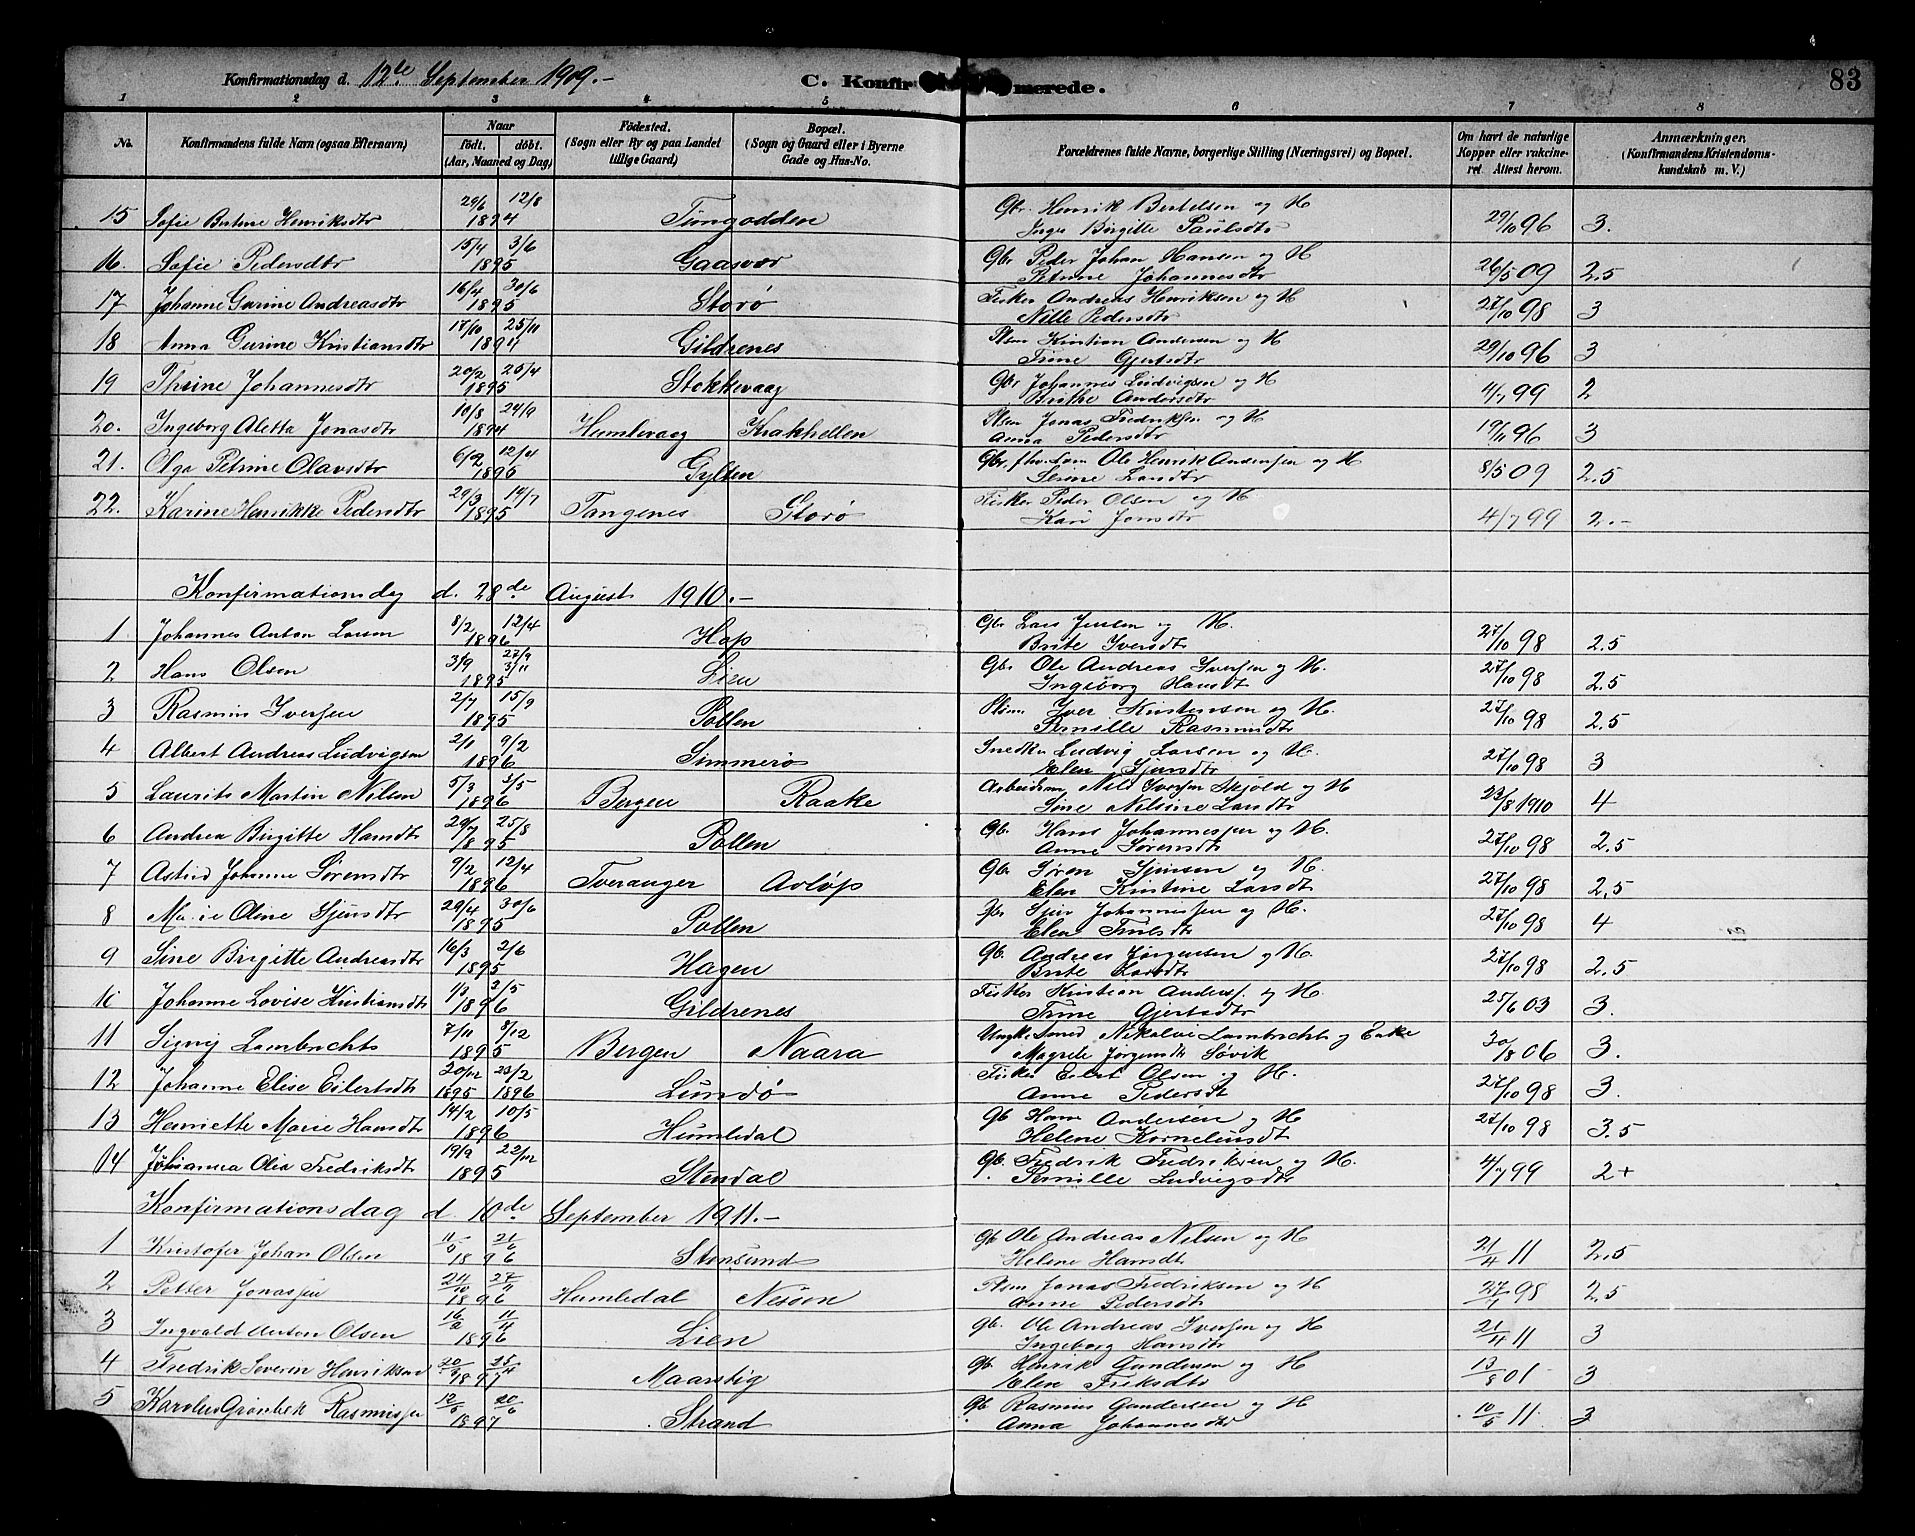 Konfirmationsdag d. 12te September 1909.- C. Konfir merede. 83
1 2 3 4 5 6 7 8
No. Konfirmandens fulde Navn (ogsaa Efternavn) Naar födt. döbt. (Aar, Maaned og Dag) Födested. (Sogn eller By og paa Landet tillige Gaard) Bopæl. (Sogn og Gaard eller i Byerne Gade og Hus-No. Forældrenes fulde Navne, borgerlige Stilling (Næringsvei) og Bopæl. Om havt de naturlige Kopper eller vakcineret. Attest herom. Anmærkninger, (Konfirmandens Kristendomskundskab m. V.)
15 Sofie Bertine Henriksdtr 29/6 12/8 1894 Tungodden Gbr. Henrik Bertelsen og H Inger Birgitte Paulsdtr 29/10 96 3.
16. Sofie Pedersdtr 15/4 3/6 1895 Gaasvær Gbr Peder Johan Hansen og H Petrine Johannesdtr 26/5 09 2.5
17 Johanne Gurine Andreasdtr 16/4 30/6 1895 Storø Fisker Andreas Henriksen og H Nille Pedersdtr 27/10 98 3
18 Anna Gurine Kristiansdtr 17/10 25/11 1894 Gildrenes Kristian Andersen og H Trine Gjertsdtr 29/10 96 3
19 Thrine Johannesdtr 20/2 25/4 1895 Stokkevaag Gbr Johannes Ludvigsen og H Brithe Andersdtr 4/7 99 2
20. Ingeborg Aletta Jonasdtr 10/8 24/9 1894 Humlevaag Krakhellen Jonas Fredriksen og H Anna Pedersdtr 19/11 96 3
21. Olga Petrine Olavsdtr 6/2 12/4 1895 Gylten Gbr. Ole Henrik Andersen og H Serine Larsdtr 8/5 09 2.5
22. Karine Henrikke Pedersdtr 29/3 14/7 1895 Tangenes Storø Fisker Peder Olsen og H Kari Jonsdtr 4/7 99 2.-
Konfirmationsdag d. 28de August 1910.-
1 Johannes Anton Larsen 8/2 12/4 1896 Hop Gbr Lars Jensen og H. Brite Iversdtr 27/10 98 2.5
2 Hans Olsen 3/9 27/9 3/11 1895 Lien Gbr Ole Andreas Iversen og H. Ingeborg Hansdt 27/10 98 2.5
3 Rasmus Iversen 2/7 15/9 1895 Pollen Iver Kristensen og H. Pernille Rasmusdtr 27/10 98 2.5
4 Albert Andreas Ludvigsen 2/1 9/2 1896 Simmerø Snedker Ludvig Larsen og H. Elen Sjursdtr 27/10 98 3
5 Laurits Martin Nilsen 5/3 3/5 1896 Bergen Raake Arbeidsm Nils Iversen Skjold og H Sine Nilsine Larsdtr 23/8 1910 4
6 Andrea Birgitte Hansdtr 29/7 25/8 1895 Pollen Gb. Hans Johannessen og H. Anne Sørensdtr 27/10 98 2.5
7 Astrid Johanne Sørensdtr 9/2 12/4 1896 Tveranger Avløp Gb. Søren Sjursen og H. Elen Kristine Larsdt 27/10 98 2.5
8 Marie Oline Sjursdtr 29/4 30/6 1895 Pollen Gbr Sjur Johannessen og H. Elen Trulsdtr 27/10 98 4
9 Sine Birgitte Andreasdtr 16/3 2/6 1895 Hagen Gb. Andreas Jørgensen og H. Brite Larsdtr 27/10 98 2.5
10 Johanne Lovise Kristiansdtr 1/3 2/5 1896 Gildrenes Fisker Kristian Anders. og H. Trine Gjertsdtr 25/6 03 3.
11 Signij Lambrechts 7/11 8/12 1895 Bergen Naara Nikolai Lambrechts og Enke Magrete Jørgensdtr Søvik 30/8 06 3.
12 Johanne Elise Eilertsdtr 20/12 23/2 1895 1896 Lundø Fisker Eilert Olsen og H. Anne Pedersdt 27/10 98 3.
13 Henriette Marie Hansdtr 14/2 10/5 1896 Humledal Gb Hans Andersen og H Helene Korneliusdt 27/10 98 3.5
14 Johanna Olea Fredriksdtr 19/9 22/12 1895 Stendal Gb. Fredrik Fredriksen og H. Pernille Ludvigsdtr 4/7 99 2+
Konfirmationsdag d 10de September 1911.-
1 Kristofer Johan Olsen 11/5 21/6 1896 Stensund Gb Ole Andreas Nilsen og H Helene Hansdt 21/4 11 2.5
2 Petter Jonassen 24/10 27/ 1896 Humledal Nesøen Jonas Fredriksen og H Anne Pedersdtr 27/ 98 2.5
3 Ingvald Anton Olsen 16/2 11/4 1896 Lien gb. Ole Andreas Iversen og H Ingeborg Hansdtr 21/4 11 3
4 Fredrik Severin Henriksen 20/ 25/4 1897 Maarstig gb. Henrik Gundersen og H Elen Eriksdtr 13/8 01 3
5 Karolus Grønbek Rasmussen 12/5 20/6 1897 Strand gb Rasmus Gundersen og H Anna Johannesdtr 10/5 11. 3